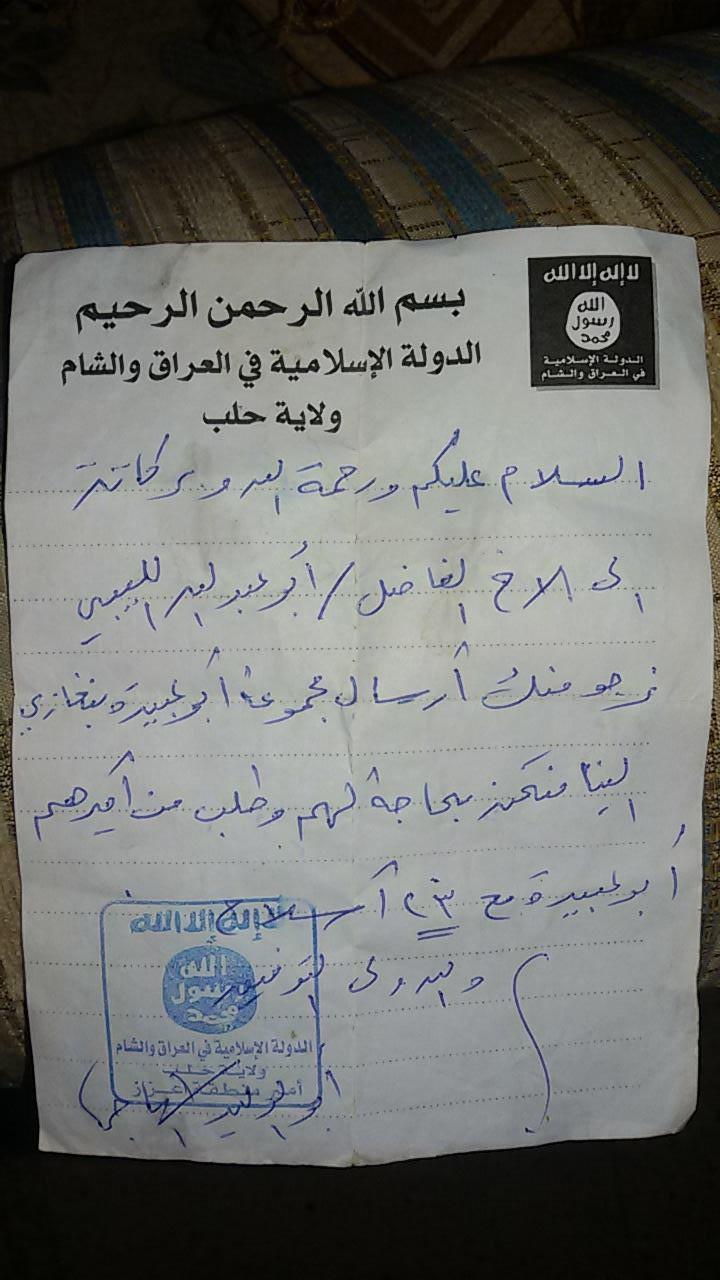 لا إله إلا الله
الله
رسول
محمد
الدولة الإسلامية
في العراق والشام
بسم الله الرحمن الرحيم
الدولة الإسلامية في العراق والشام
ولاية حلب
السلام عليكم ورحمة الله وبركاته
الى الاخ الفاضل / أبو عبد الله الليبي
نرجو منك أرسال مجموعة أبو عبيدة بنغازي
لينا فنحن بحاجة لهم وطلب من أميرهم
أبو عبيدة مع
والله ولى التوفيق
لا إله إلا الله
الله
رسول
محمد
الدولة الإسلامية في العراق والشام
ولاية حلب
منطقة عزاز
أبو الوليد المهاجر